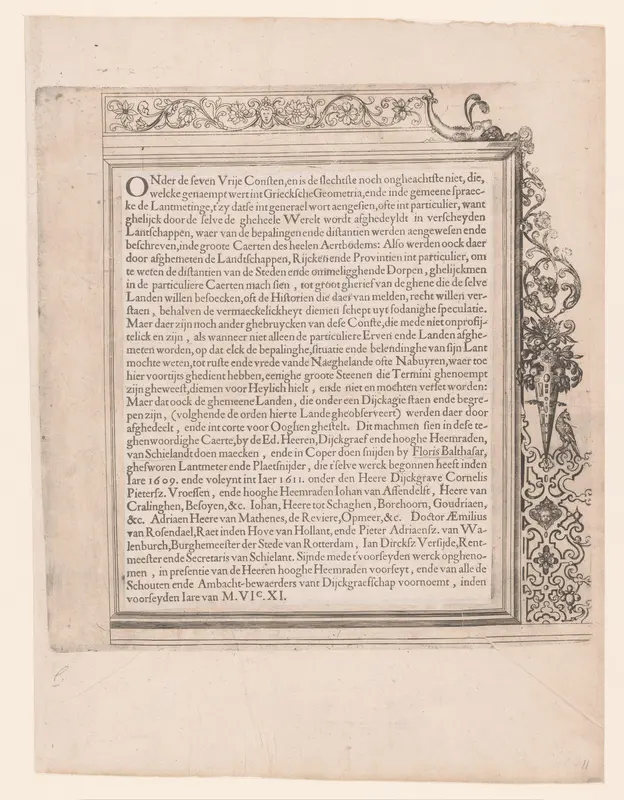 ONder de seven Vrije Consten, en is de slechtste noch ongheachtste niet, die,
welcke genaempt wert int Grieckſche Geometria, ende inde gemeene ſpraec-
ke de Lantmetinge, t'zy datse int generael wort aengesien, ofte int particulier, want
ghelijck door de ſelve de gheheele Werelt wordt afghedeyldt in verſcheyden
Lantſchappen, waer van de bepalingen ende diſtantien werden aengewesen ende
beſchreven, inde groote Caerten des heelen Aertbodems: Alſo werden oock daer
door afghemeten de Landtſchappen, Rijcken ende Provintien int particulier, om
te weten de diſtantien van de Steden ende ommeligghende Dorpen, ghelijckmen
in de particuliere Caerten mach ſien, tot groot gherief van de ghene die de ſelve
Landen willen beſoecken, oft de Hiſtorien die daer van melden, recht willen ver-
ſtaen, behalven de vermaeckelickheyt diemen ſchept uyt ſodanighe ſpeculatie.
Maer daer zijn noch ander ghebruycken van deſe Conſte, die mede niet onprofij-
telick en zijn, als wanneer niet alleen de particuliere Erven ende Landen afghe-
meten worden, op dat elck de bepalinghe, ſituatie ende belendinghe van ſijn Lant
mochte weten, tot ruſte ende vrede vande Naeghelande ofte Nabuyren, waer toe
hier voortijts ghedient hebben, eenighe groote Steenen die Termini ghenoempt
zijn gheweeſt, diemen voor Heylich hielt, ende niet en mochten verſet worden:
Maer dat oock de ghemeene Landen, die onder een Dijckagie ſtaen ende begre-
pen zijn, (volghende de orden hier te Lande gheobſerveert) werden daer door
afghedeelt, ende int corte voor Ooghen gheſtelt. Dit machmen ſien in deſe te-
ghenwoordighe Caerte, by de Ed. Heeren, Dijckgraef ende hooghe Heemraden,
van Schielandt doen maecken, ende in Coper doen ſnijden by Floris Balthaſar,
gheſworen Lantmeter ende Plaetſnijder, die t'ſelve werck begonnen heeft inden
Iare 1609. ende voleynt int Iaer 1611. onder den Heere Dijckgrave Cornelis
Pieterſz. Vroeſſen, ende hooghe Heemraden Iohan van Aſſendelft, Heere van
Cralinghen, Beſoyen, &c. Iohan, Heere tot Schaghen, Borchoorn, Goudriaen,
&c. Adriaen Heere van Mathenes, de Reviere, Opmeer, &c. Doctor Æmilius
van Roſendael, Raet inden Hove van Hollant, ende Pieter Adriaenſz. van Wa-
lenburch, Burghemeeſter der Stede van Rotterdam, Ian Dirckſz Verſijde, Rent-
meeſter ende Secretaris van Schielant. Sijnde mede t'voorſeyden werck opgheno-
men, in preſentie van de Heeren hooghe Heemraden voorſeyt, ende van alle de
Schouten ende Ambacht-bewaerders vant Dijckgraefſchap voornoemt, inden
voorſeyden Iare van M. VIᶜ. XI.
11